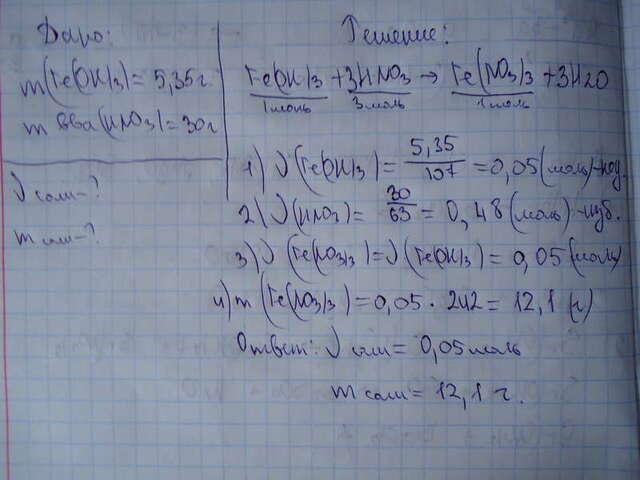 Дано:
m(Fe(OH)3) = 5,35 г
m в-ва(HNO3) = 30 г
ν соли-?
m соли-?
Решение:
Fe(OH)3 + 3HNO3 → Fe(NO3)3 + 3H2O
1 моль 3 моль 1 моль
1) ν(Fe(OH)3) = 5,35/107 = 0,05 (моль)-нед.
2) ν(HNO3) = 30/63 = 0,48 (моль)-изб.
3) ν(Fe(NO3)3) = ν(Fe(OH)3) = 0,05 (моль)
4) m (Fe(NO3)3) = 0,05 · 242 = 12,1 (г)
Ответ: ν соли = 0,05 моль
m соли = 12,1 г.